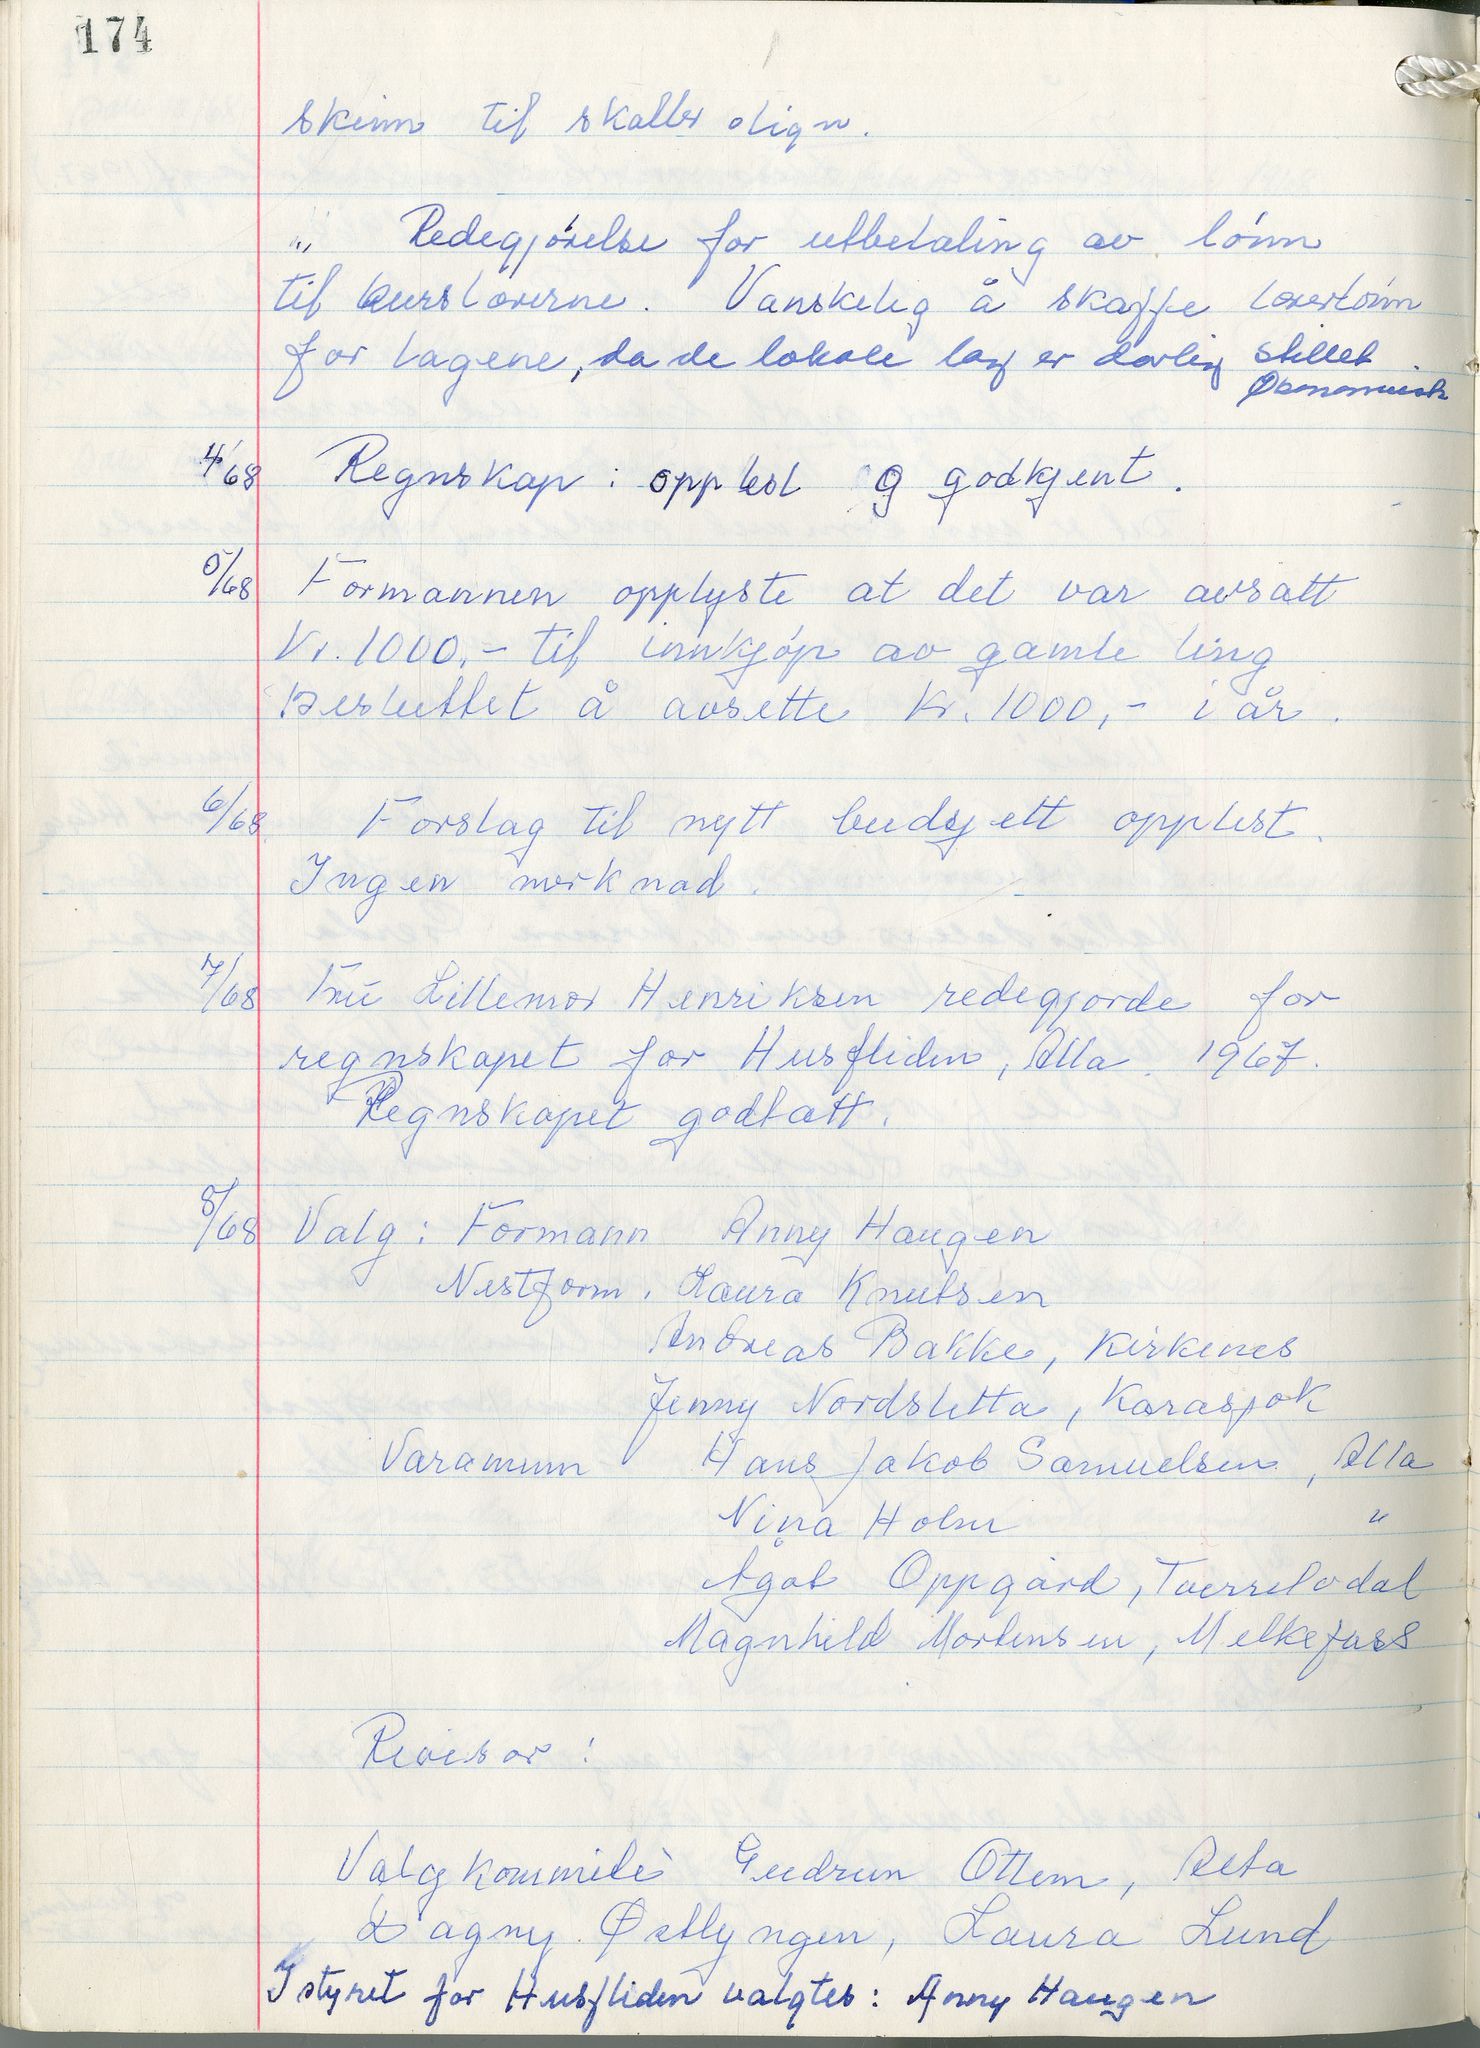 174
skinn til skaller olign.
" Redegjørelse for utbetaling av lønn
til kurslærerne. Vanskelig å skaffe lærerlønn
for lagene, da de lokale lag er dårlig stillet
økonomisk
4/68 Regnskap: opplest og godkjent.
5/68 Formannen opplyste at det var avsatt
Kr. 1000,- til innkjøp av gamle ting
Besluttet å avsette Kr. 1000,- i år.
6/68 Forslag til nytt budsjett opplest.
Ingen merknad.
7/68 Fru Lillemor Henriksen redegjorde for
regnskapet for Husfliden, Alta. 1967.
Regnskapet godtatt.
8/68 Valg: Formann Anny Haugen
Nestform. Laura Knutsen
Andreas Bakke, Kirkenes
Jenny Nordsletta, Karasjok
Varamenn Hans Jakob Samuelsen, Alta
Nina Holm "
Ågot Oppgård, Tverrelvdal
Magnhild Mortensen, Melkefoss
Revisor:
Valgkommité Gudrun Ottem, Alta
Dagny Østlyngen, Laura Lund
I styret for Husfliden valgtes: Anny Haugen